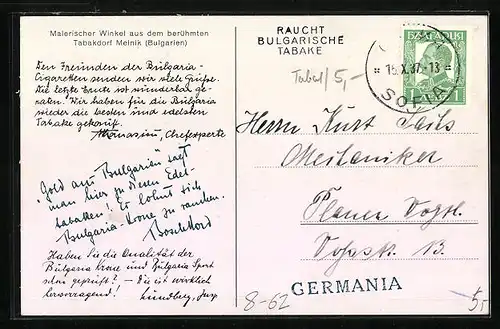 Malerischer Winkel aus dem berühmten
Tabakdorf Melnik (Bulgarien)
Den Freunden der Bulgaria-
Cigaretten senden wir viele Grüße.
Die letzte Ernte ist wunderbar ge-
raten. Wir haben für die Bulgaria
wieder die besten und edelsten
Tabake gekauft.
Athanasiu, Chefexperte
"Gold aus Bulgarien" sagt
man hier zu diesen Edel-
tabaken! Es lohnt sich
Bulgaria-Krone zu rauchen.
Haben Sie die Qualität der
Bulgaria Krone und Bulgaria Sport
schon geprüft? – Die ist wirklich
hervorragend! Lundberg,
RAUCHT
BULGARISCHE
TABAKE
Tabak/5,-
15.X.37.-13
SOFIA
1 1
Herrn Kurt
Mechaniker
Plauen Vogtl.
13.
GERMANIA
8-62
5,-